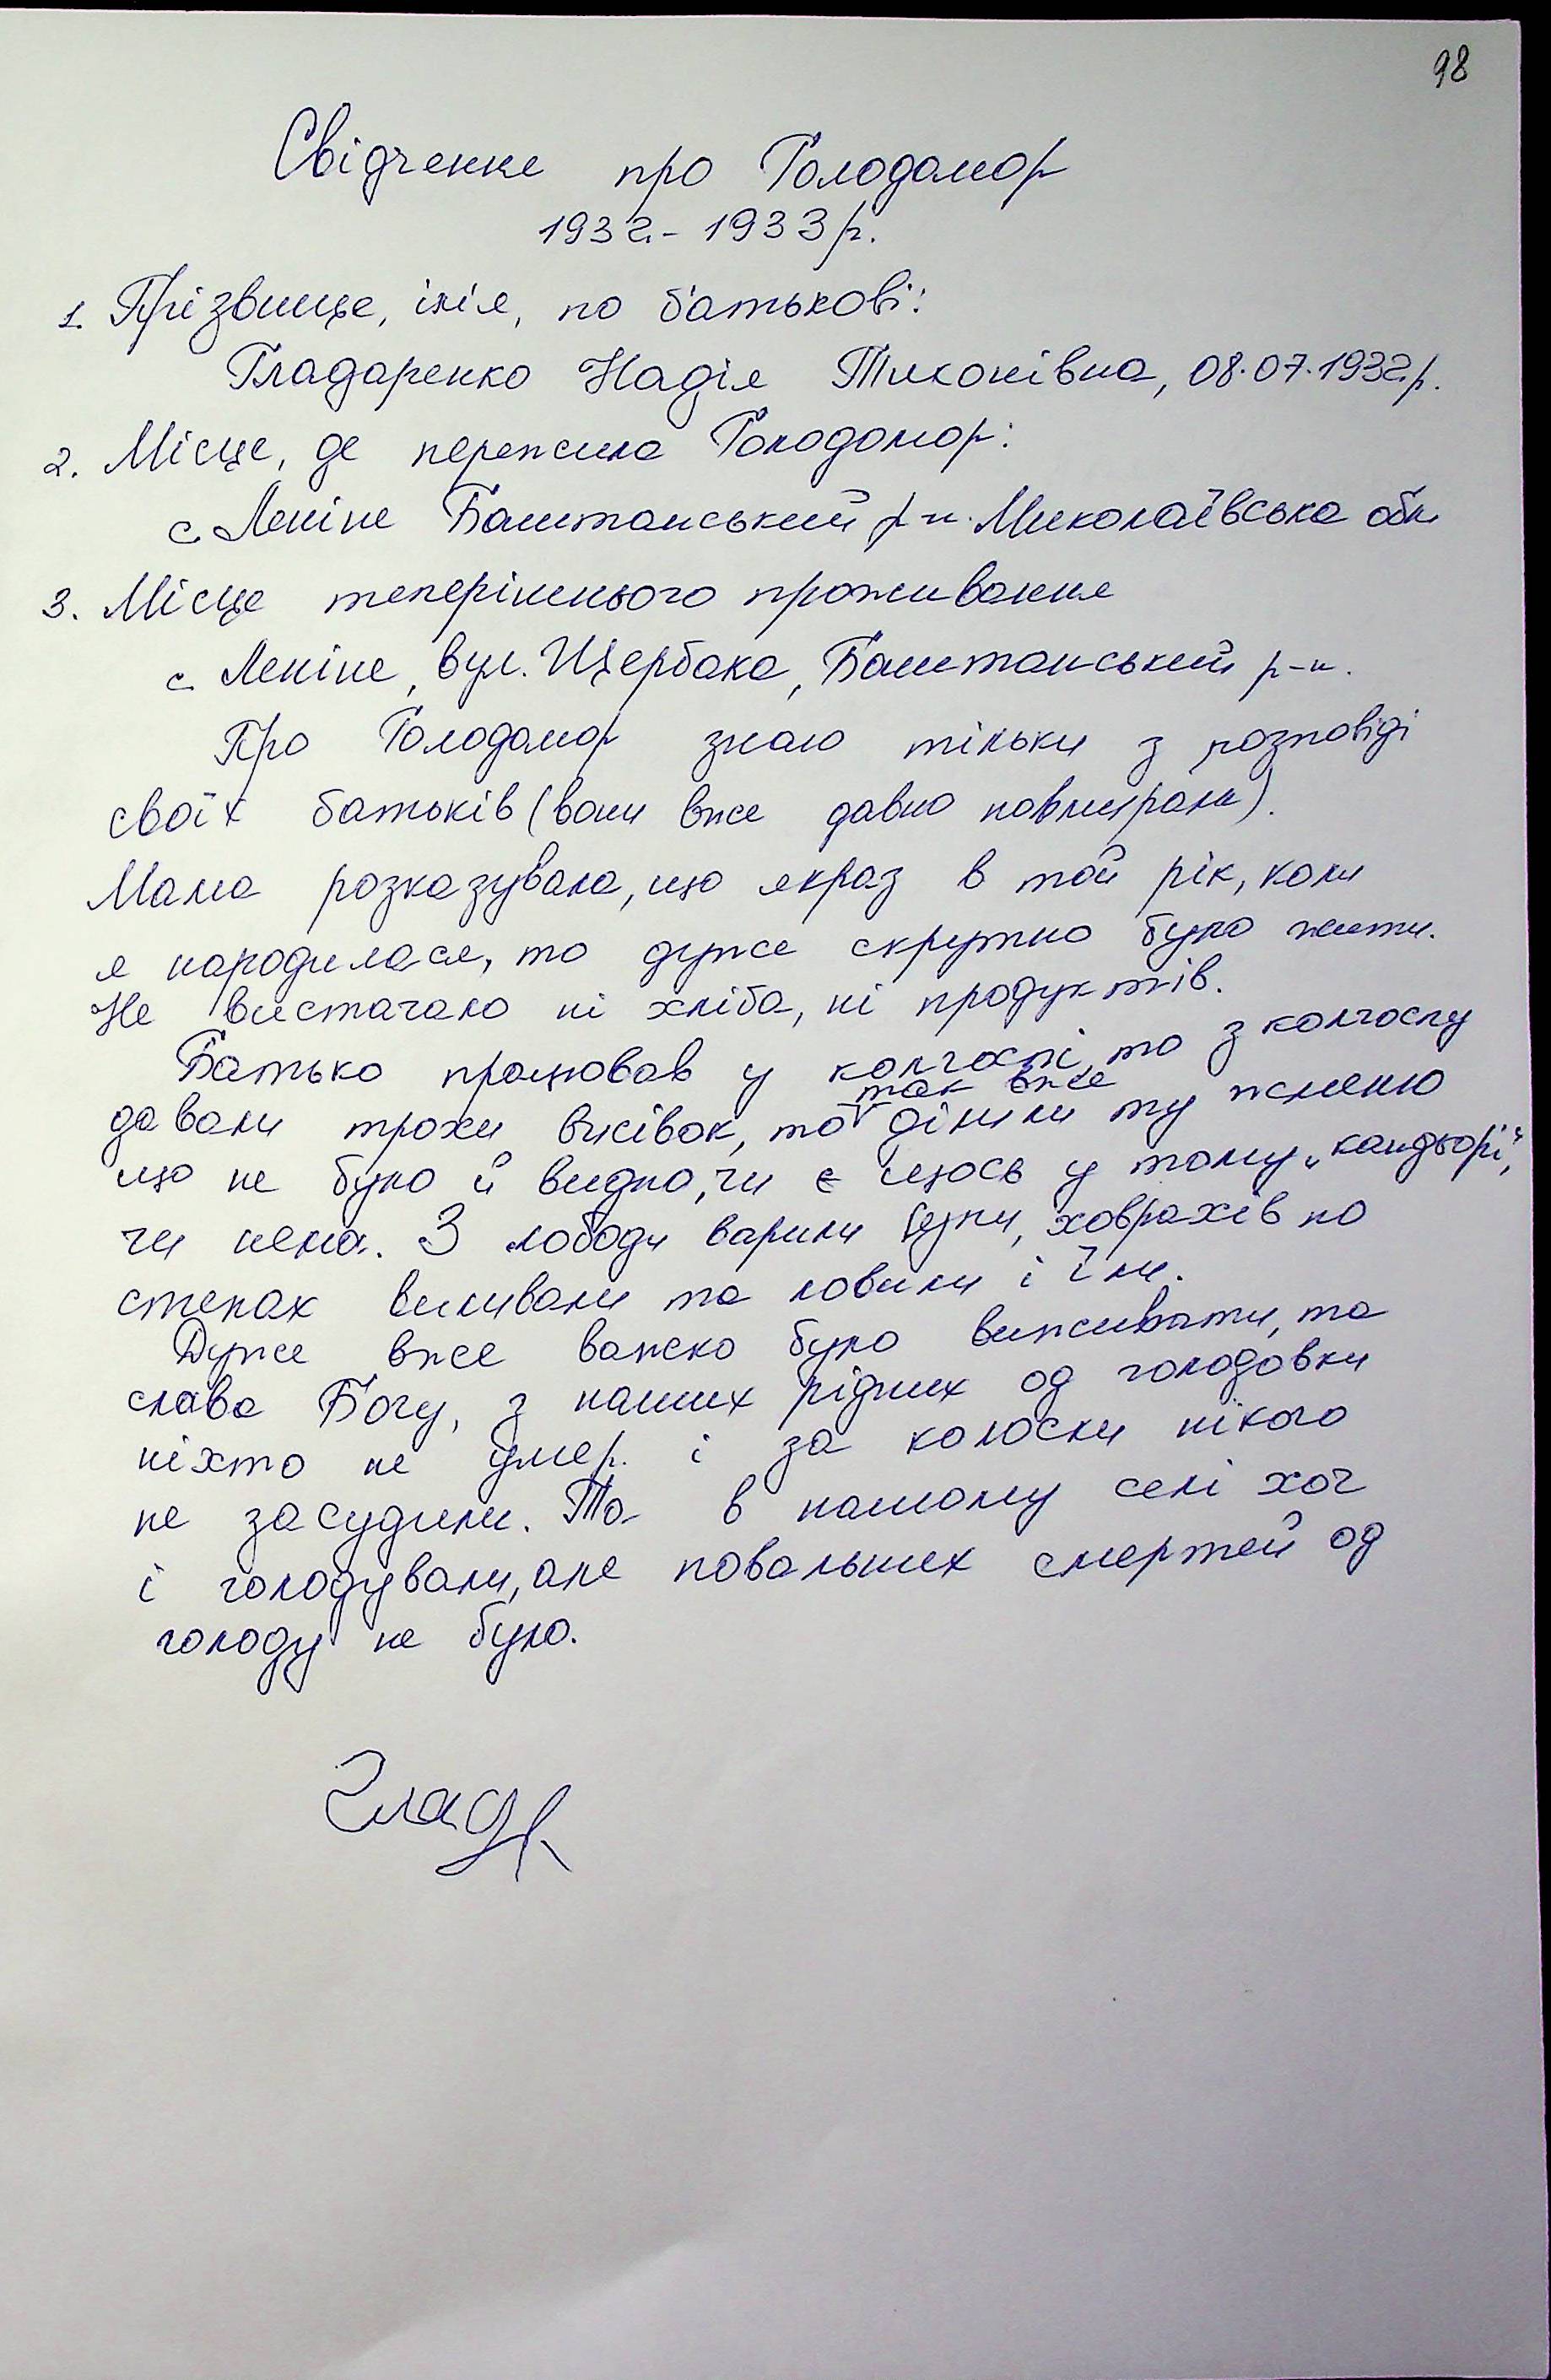 98
Свідчення про Голодомор
1932-1933р.
1. Прізвище, ім'я, по батькові:
Гладаренко Надія Тихонівна, 08.07.1932р.
2. Місце, де пережила Голодомор:
с. Леніне Баштанський р-н. Миколаївська обл
3. Місце теперішнього проживання
с. Леніне, вул. Щербака, Баштанський р-н.
Про Голодомор знаю тільки з розповіді
своїх батьків (вони вже давно повмирали).
Мама розказувала, що якраз в той рік, коли
я народилася, то дуже скрутно було жити.
Не вистачало ні хліба, ні продуктів.
Батько працював у колгоспі, то з колгоспу
давали трохи висівок, то так вже ділили ту жменю
що не було й видно, чи є щось у тому „кандьорі",
чи нема. З лободи варили супи, ховрахів по
степах виливали та ловили і їли.
Дуже вже важко було виживати, та
слава Богу, з наших рідних од голодовки
ніхто не умер. і за колоски нікого
не засудили. Та в нашому селі хоч
і голодували, але повальних смертей од
голоду не було.
Глад